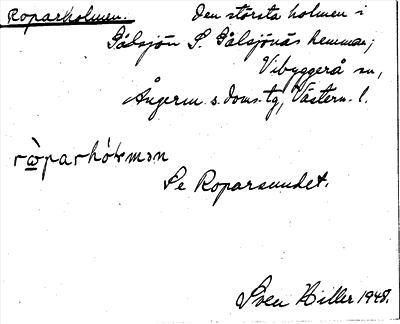 Roparholmen. Den största holmen i
Gålsjön S. Gålsjönäs hemman,
Vibyggerå sn,
Ångerm. s. doms.tg, Västern. l.
Se Roparsundet.
Sven Hiller 1948.